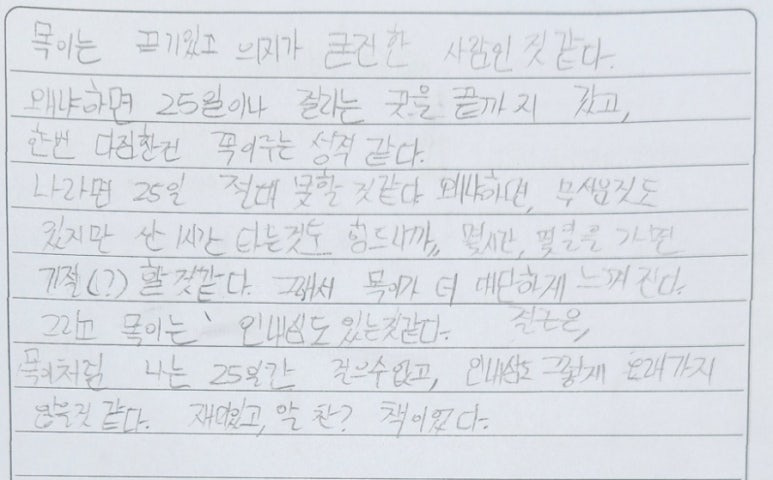 목이는 끈기있고 의지가 굳건한 사람인 것 같다.
왜냐하면 25일이나 줄라는 곳을 끝까지 갔고,
한번 다짐한건 꼭이루는 성격 같다.
나라면 25일 절대 못할 것같다 왜냐하면, 무서움것도
있지만 산 1시간 타는것도 힘드니까,, 몇시간, 몇일을 가면
기절(?) 할것같다. 그래서 목이가 더 대단하게 느껴진다.
그리고 목이는 인내심도 있는것같다.
목이처럼 나는 25일간 걸을수없고, 인내심도 그렇게 오래가지
않을것 같다. 재미있고, 알 찬? 책이었다.